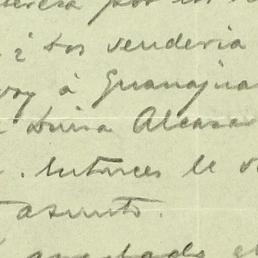 por los
¿ Los venderia
voy á Guanajua
Luisa Alcaza
. Entonces le v
asunto.